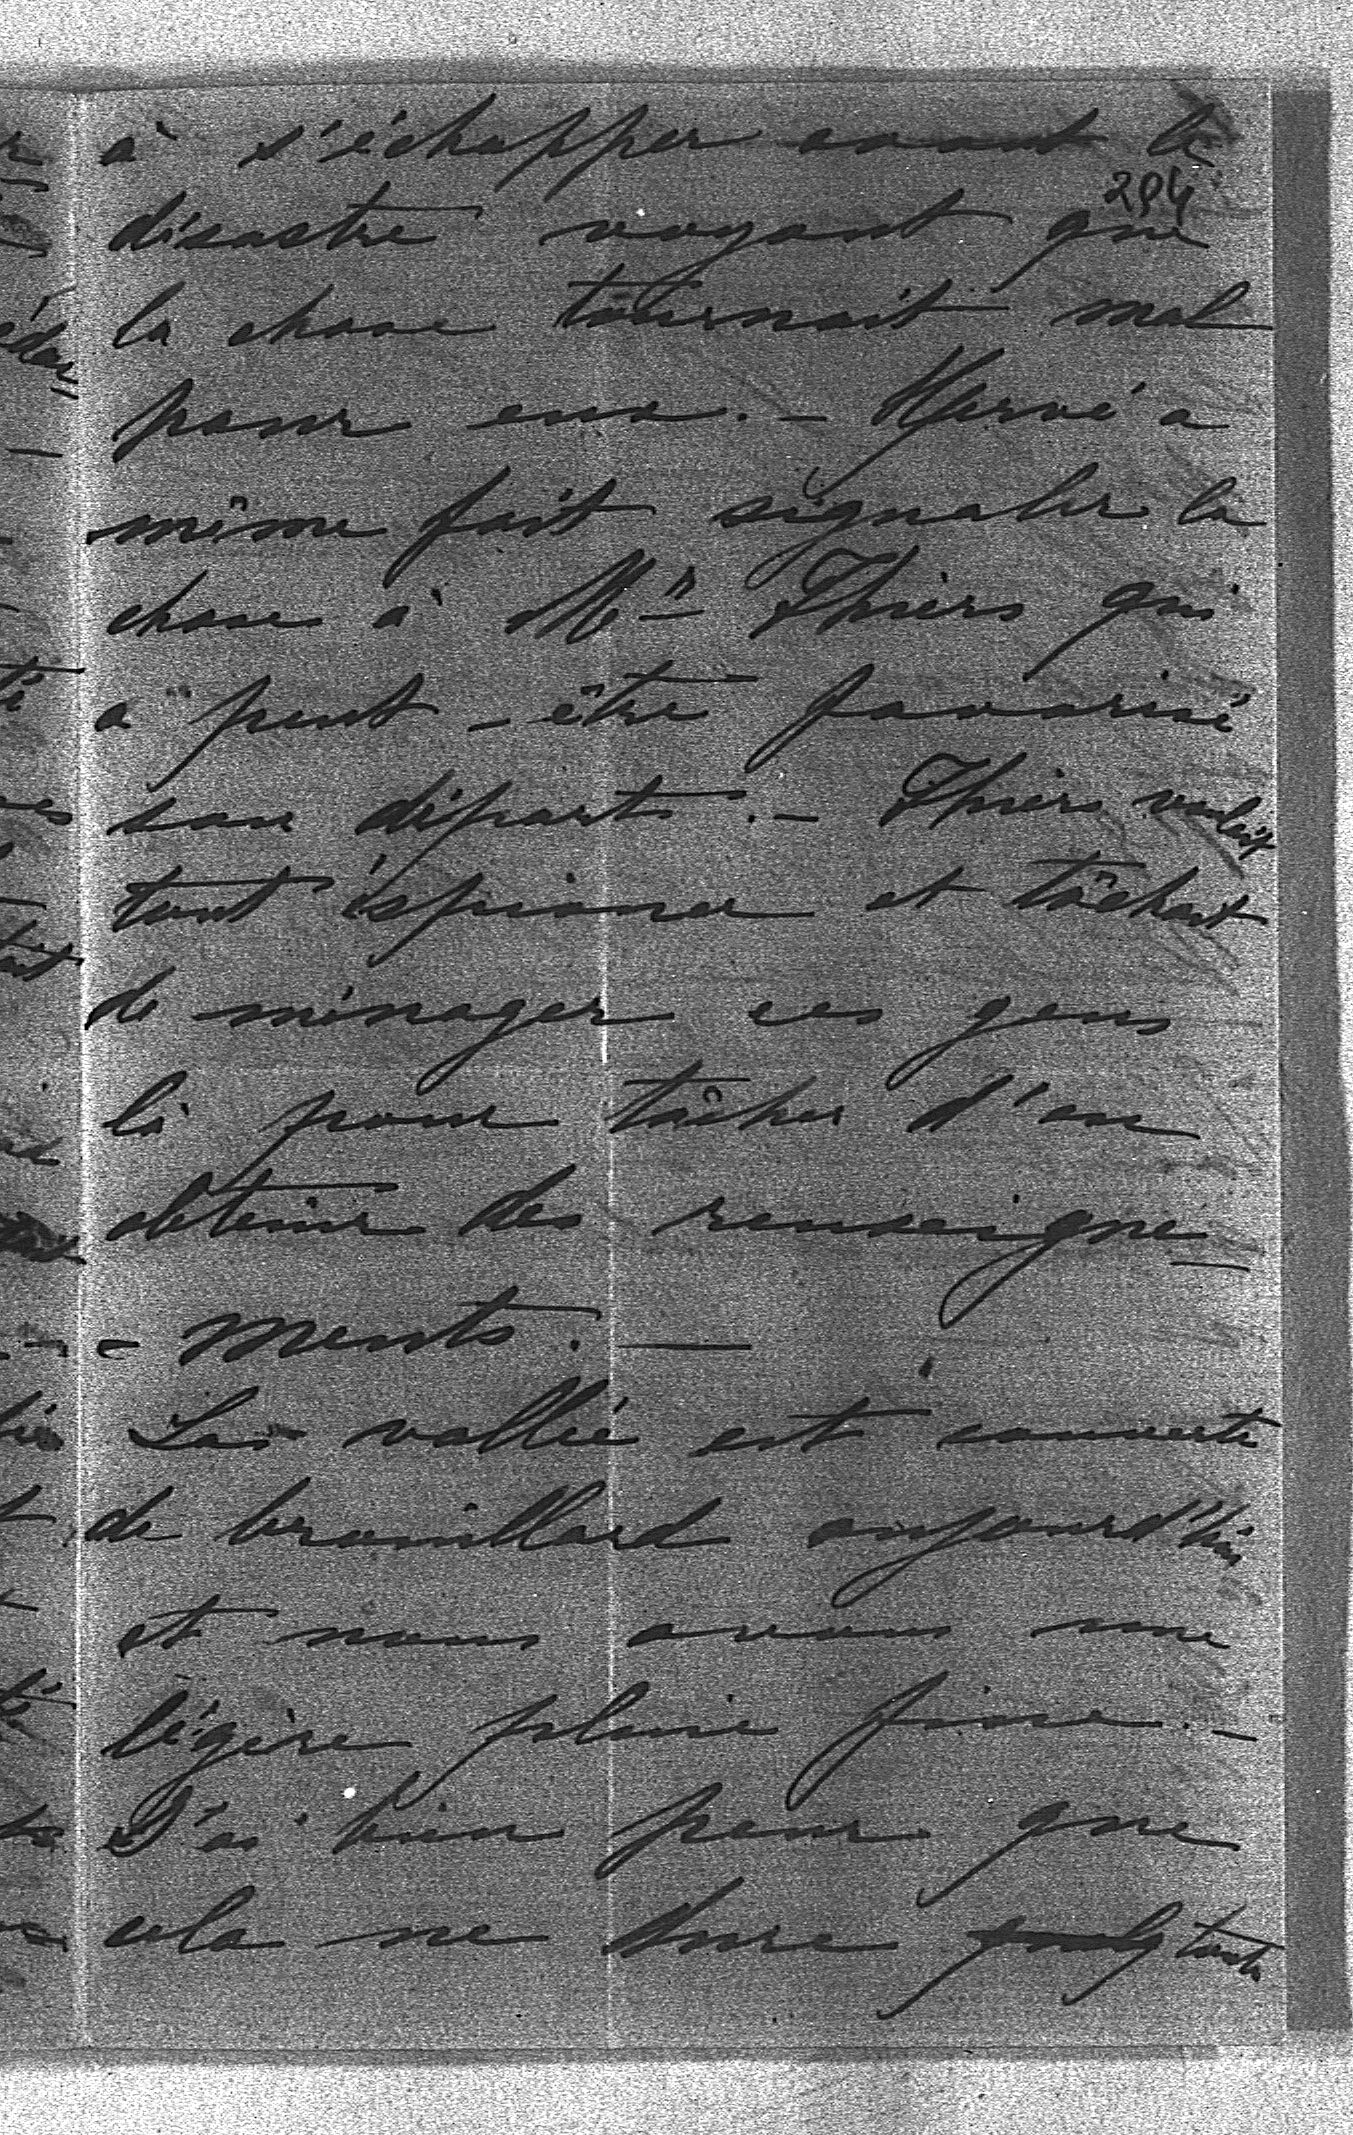 à s'échapper avant le
204
désastre voyant que
la chose tournait mal
pour eux. – Hervé a
même fait signaler la
chose à Mr Thiers qui
a peut-être favorisé
son départ. – Thiers voulait
tout espionner et tâchait
de ménager ces gens
là pour tâcher d'en
obtenir des renseigne-
- ments. —
La vallée est couverte
de brouillard aujourd'hui
et nous avons une
légère pluie fine. –
J'ai bien peur que
cela ne dure